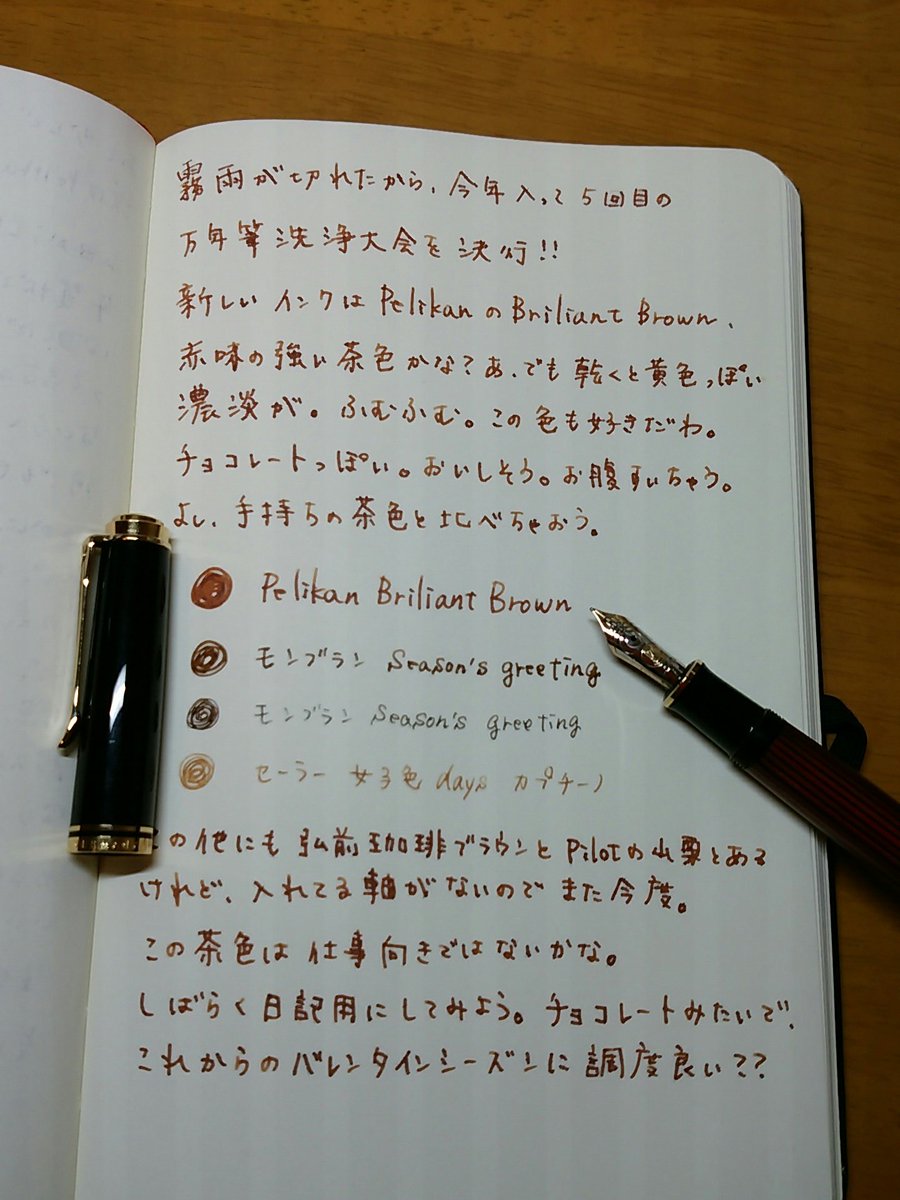 霧雨が切れたから、今年入って5回目の
万年筆洗浄大会を決行!!
新しいインクはPelikanのBriliant Brown、
赤味の強い茶色かな?あ、でも乾くと黄色っぽい
濃淡が。ふむふむ。この色も好きだわ。
チョコレートっぽい。おいしそう。お腹すいちゃう。
よし、手持ちの茶色と比べちゃおう。
Pelikan Briliant Brown
モンブラン Season's greeting
モンブラン Season's greeting
セーラー 女子色days カプチーノ
の他にも弘前珈琲ブラウンとPilotの山栗とある
けれど、入れてる軸がないのでまた今度。
この茶色は仕事向きではないかな。
しばらく日記用にしてみよう。チョコレートみたいで、
これからのバレンタインシーズンに調度良い??